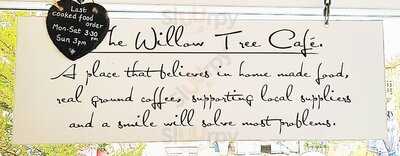 Last
cooked food
order
Mon-Sat 3:30 pm
Sun 3pm
The Willow Tree Café.
A place that believes in home made food,
real ground coffee, supporting local suppliers
and a smile will solve most problems.
Sluurpy